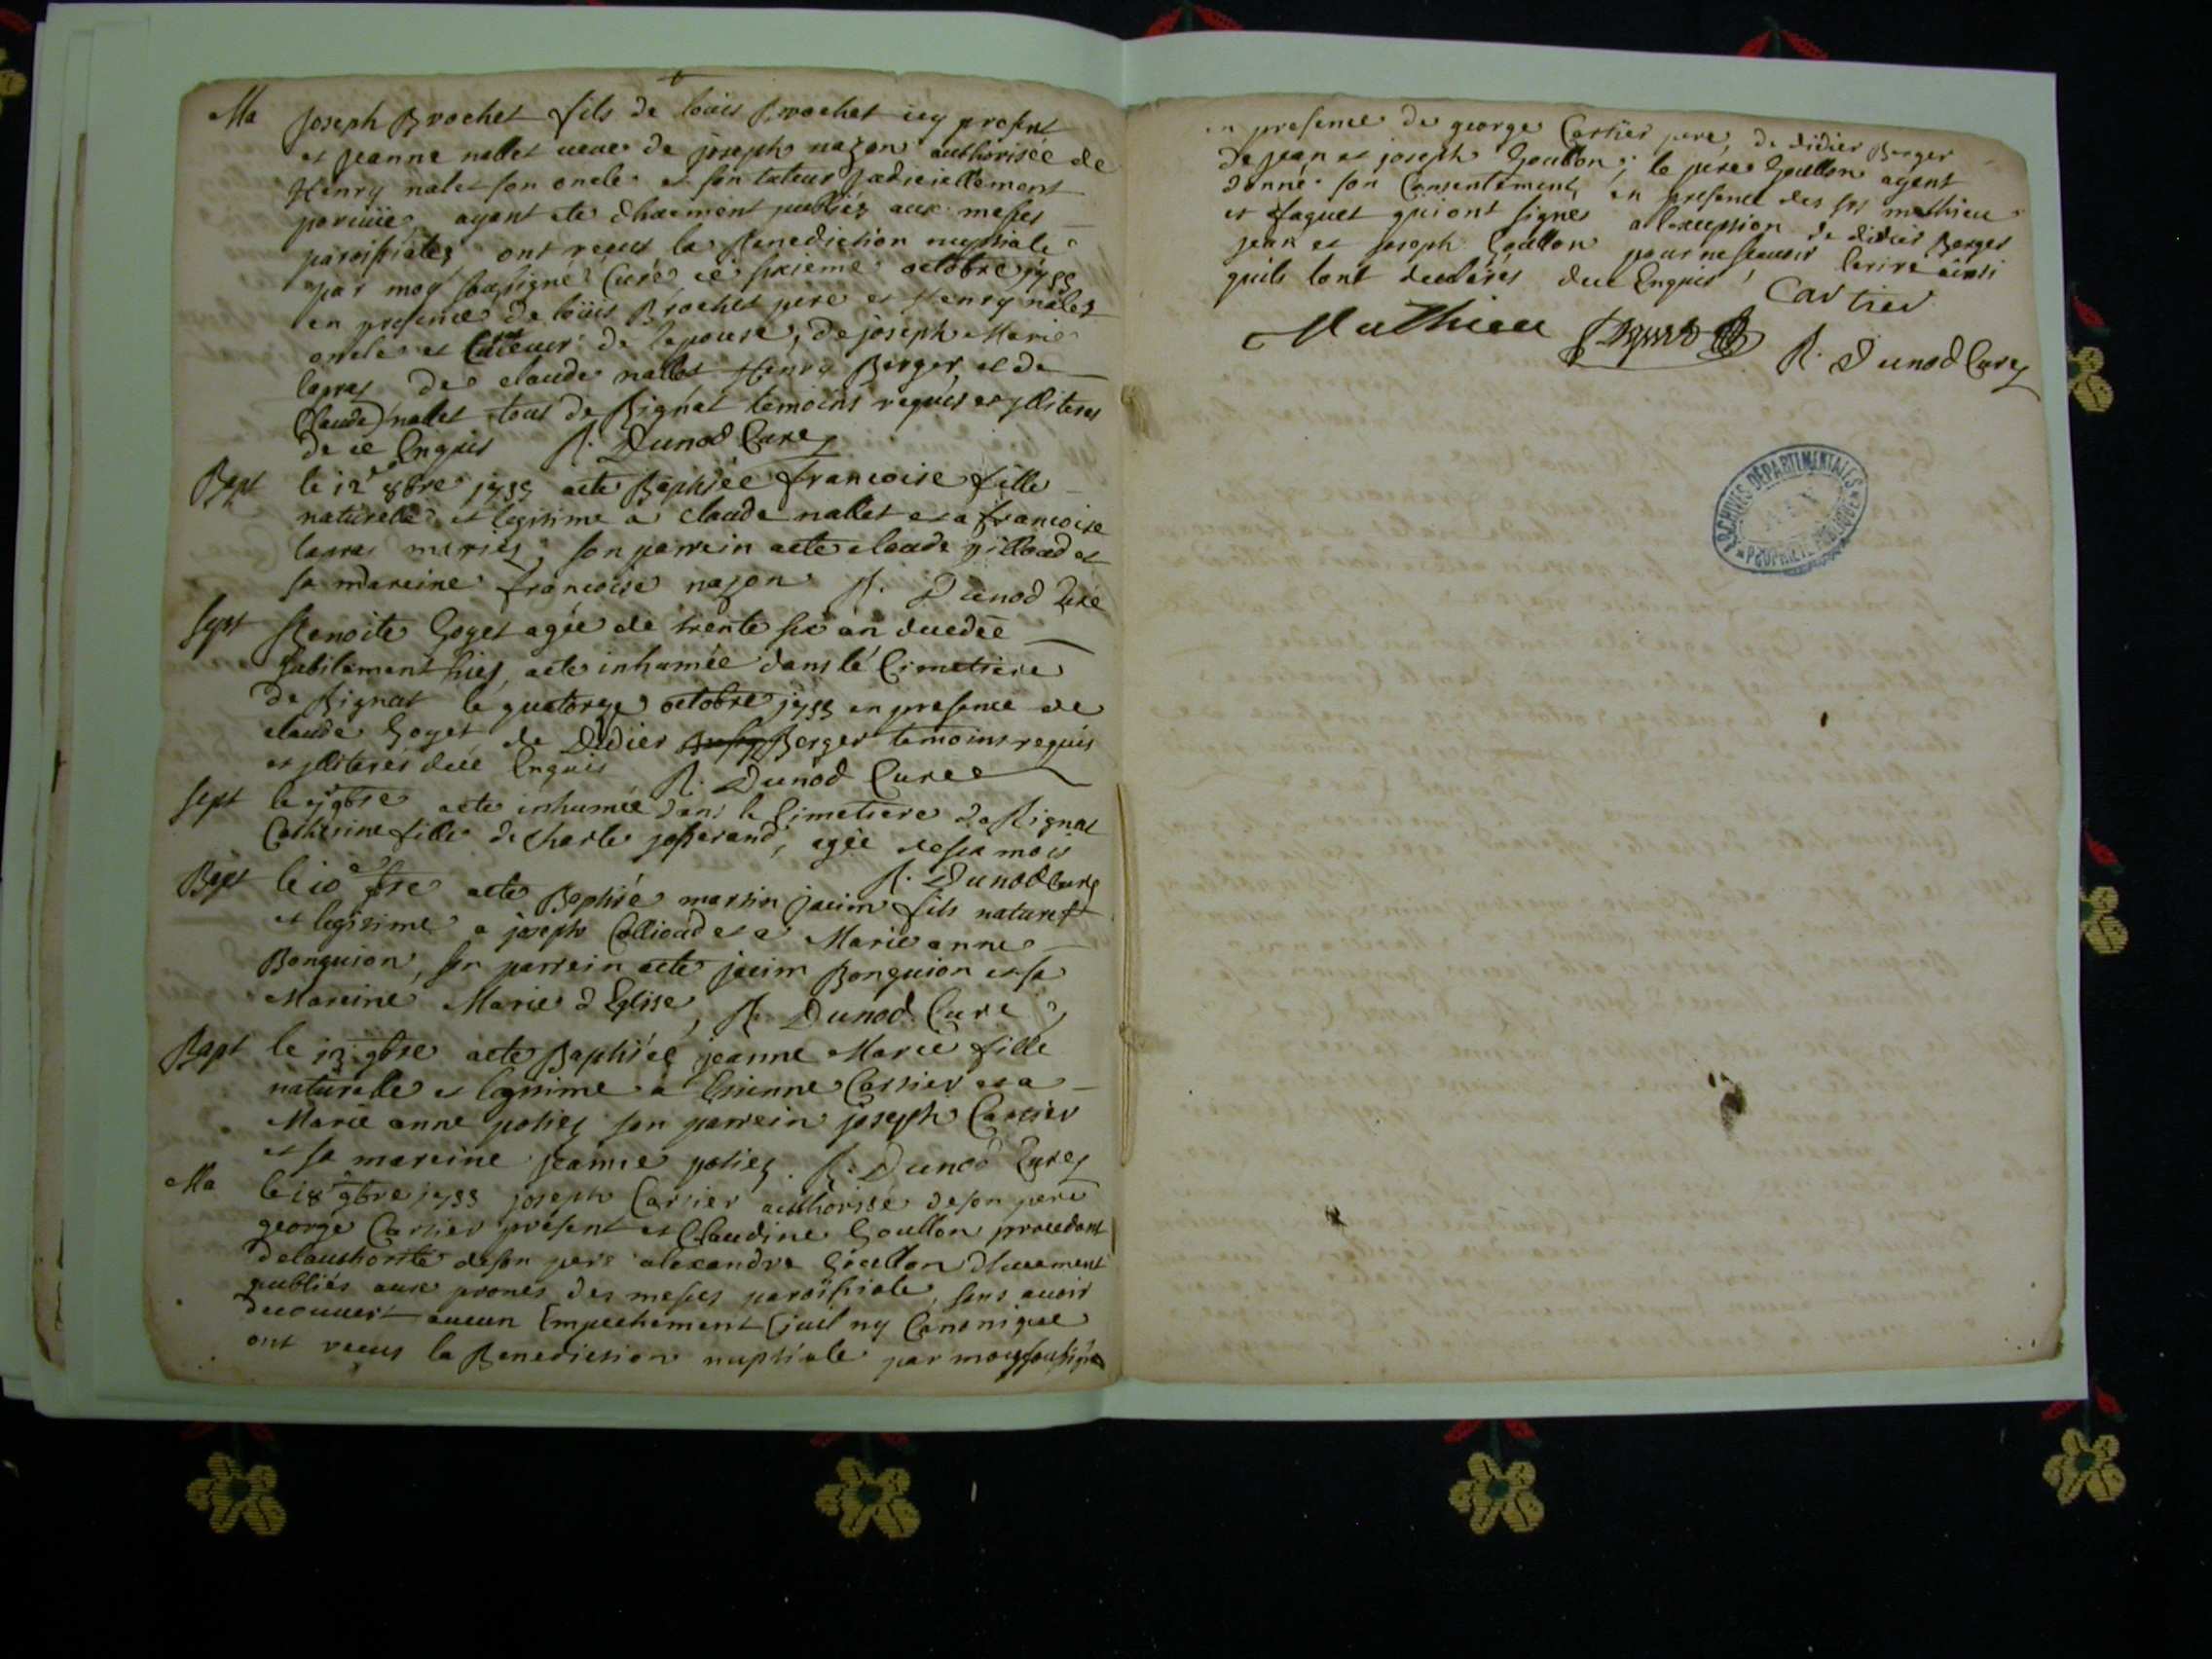 Ma Joseph Brochet fils de loüis Brochet icy present
et jeanne nallet veuve de joseph nazon authorisée de
Henry nalet son oncle et son tuteur judiciellement
pourvüe ayant ete dhuement publiéz aux messes
paroissiales ont reçus la Benediction nuptiale
par moy soussigné Curé ce sixieme octobre 1733
en presence de loüis Brochet pere et Henry nalet
oncle et tuteur de lepouse, de joseph Marie
lavras de claude nallet Henry Berger et de
Claude nallet tous de Rignat temoins requis et jlliteres
de ce Enquis R. Dunod Curé
Bapt le 12e 8bre 1733 a ete Baptisée francoise fille
naturelle et legitime a claude nallet et a francoise
lavras mariés, son parrein a ete claude pilloud et
sa mareine francoise nazon R. Dunod Curé
Sept Benoite Goyet agée de trente six an decedée
subitement hier, a ete inhumée dans le Cimetiere
de Rignat le quatorze octobre 1733 en presence de
claude Goyet de Didier Berger temoins requis
et jlliterés de ce Enquis R. Dunod Curé
Sept le 9bre a ete inhumée dans le Cimetiere de Rignat
Catherine fille de Charle josserand, agée de six mois
R. Dunod Curé
Bapt le 10e 9bre a ete Baptisé martin jacim fils naturel
et legitime a joseph Collioud et a Marie anne
Bonguion, son parrein a ete jacim Bonguion et sa
Mareine Marie d Eglise, R. Dunod Curé
Bapt le 13 9bre a ete Baptisée jeanne Marie fille
naturelle et legitime a Etienne Cartier et a
Marie anne poliez son parrein joseph Cartier
et sa mareine jeanne poliez. R. Dunod Curé
Ma le 18e 9bre 1733 joseph Cartier authorisé de son pere
george Cartier présent et Claudine Goullon procedant
de lauthorite de son pere alexandre Goullon dhuement
publiés aux prones des messes paroissiale, sans avoir
decouvert aucun Empechement Civil ny Canonique
ont reçus la Benediction nuptiale par moy soussigné
en presence de george Cartier pere, de didier Berger
de jean et joseph Goullon; le pere Goullon ayent
donné son Consentement, en presence des srs mathieu
et jaquet qui ont signés a lexception de didier Berger
jean et joseph Goullon pour ne scavoir Ecrire ainsi
quils lont declarés de ce Enquis Cartier
Mathieu R. Dunod Curé
ARCHIVES DÉPARTEMENTALES
AIN
PROPRIÉTÉ PUBLIQUE